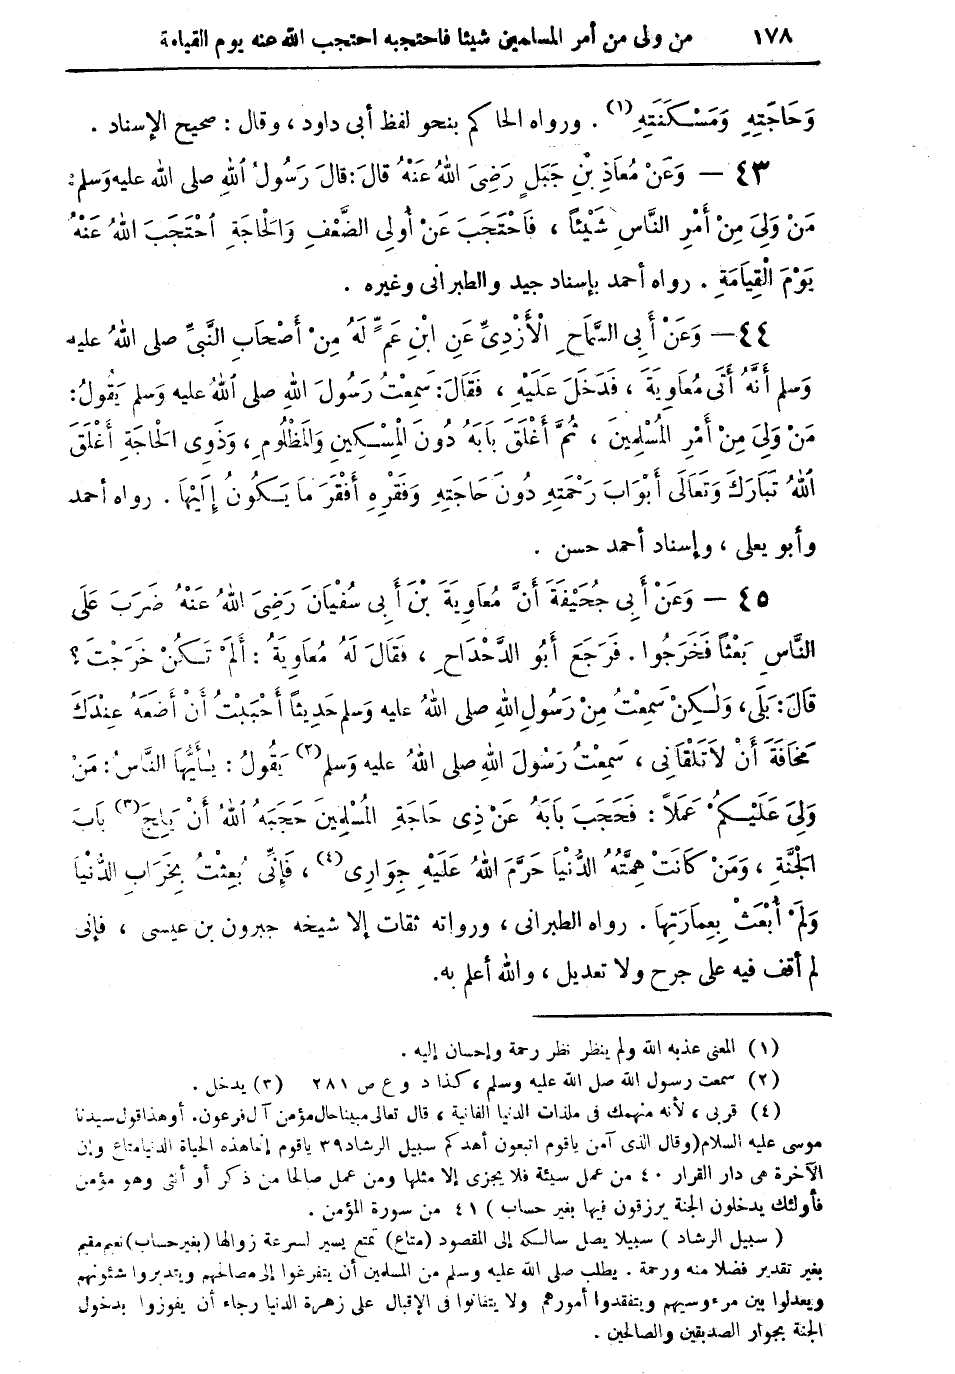 ١٧٨ من ولى من أمر المسلمين شيئا فاحتجبه احتجب الله عنه يوم القيامة
وَحَاجَتِهِ وَمَسْكَنَتِهِ(١) . ورواه الحاكم بنحو لفظ أبى داود ، وقال : صحيح الإسناد .
٤٣ — وَعَنْ مُعَاذِ بْنِ جَبَلٍ رَضِىَ اللهُ عَنْهُ قالَ: قالَ رَسُولُ اللهِ صلى الله عليه وسلم:
مَنْ وَلِىَ مِنْ أَمْرِ النَّاسِ شَيْئاً ، فَاحْتَجَبَ عَنْ أُولِى الضَّعْفِ وَالْحَاجَةِ احْتَجَبَ اللهُ عَنْهُ
يَوْمَ الْقِيَامَةِ . رواه أحمد بإسناد جيد والطبرانى وغيره .
٤٤ — وَعَنْ أَبِى السَّمَاحِ الْأَزْدِىِّ عَنِ ابْنِ عَمٍّ لَهُ مِنْ أَصْحَابِ النَّبِىِّ صلى اللهُ عليه
وسلم أَنَّهُ أَتَى مُعَاوِيَةَ ، فَدَخَلَ عَلَيْهِ ، فَقَالَ: سَمِعْتُ رَسُولَ اللهِ صلى اللهُ عليه وسلم يَقُولُ:
مَنْ وَلِىَ مِنْ أَمْرِ الْمُسْلِمِينَ ، ثُمَّ أَغْلَقَ بَابَهُ دُونَ الْمِسْكِينِ وَالْمَظْلُومِ ، وَذَوِى الْحَاجَةِ أَغْلَقَ
اللهُ تَبَارَكَ وَتَعَالَى أَبْوَابَ رَحْمَتِهِ دُونَ حَاجَتِهِ وَفَقْرِهِ أَفْقَرَ مَا يَكُونُ إِلَيْهَا . رواه أحمد
وأبو يعلى ، وإسناد أحمد حسن .
٤٥ — وَعَنْ أَبِى جُحَيْفَةَ أَنَّ مُعَاوِيَةَ بْنَ أَبِى سُفْيَانَ رَضِىَ اللهُ عَنْهُ ضَرَبَ عَلَى
النَّاسِ بَعْثاً فَخَرَجُوا . فَرَجَعَ أَبُو الدَّحْدَاحِ ، فَقَالَ لَهُ مُعَاوِيَةُ : أَلَمْ تَكُنْ خَرَجْتَ ؟
قَالَ: بَلَى، وَلٰكِنْ سَمِعْتُ مِنْ رَسُولِ اللهِ صلى اللهُ عليه وسلم حَدِيثاً أَحْبَبْتُ أَنْ أَضَعَهُ عِنْدَكَ
مَخَافَةَ أَنْ لاَ تَلْقَانِى ، سَمِعْتُ رَسُولَ اللهِ صلى اللهُ عليه وسلم(٢) يَقُولُ : يٰأَيُّهَا النَّاسُ : مَنْ
وَلِىَ عَلَيْكُمْ عَمَلاً : فَحَجَبَ بَابَهُ عَنْ ذِى حَاجَةِ الْمُسْلِمِينَ حَجَبَهُ اللهُ أَنْ يَلِجَ(٣) بَابَ
الْجَنَّةِ ، وَمَنْ كَانَتْ هِمَّتُهُ الدُّنْيَا حَرَّمَ اللهُ عَلَيْهِ جِوَارِى(٤) ، فَإِنِّى بُعِثْتُ بِخَرَابِ الدُّنْيَا
وَلَمْ أُبْعَثْ بِعِمَارَتِهَا . رواه الطبرانى ، ورواته ثقات إلا شيخه جبرون بن عيسى ، فإنى
لم أقف فيه على جرح ولا تعديل ، والله أعلم به.
(١) المعنى عذبه الله ولم ينظر نظر رحمة وإحسان إليه .
(٢) سمعت رسول الله صلى الله عليه وسلم ، كذا د و ع ص ٢٨١ (٣) يدخل .
(٤) قربى ، لأنه منهمك فى ملذات الدنيا الفانية ، قال تعالى مبينا حال مؤمن آل فرعون. أو هذا قول سيدنا
موسى عليه السلام (وقال الذى آمن ياقوم اتبعون أهدكم سبيل الرشاد ٣٩ ياقوم إنما هذه الحياة الدنيا متاع وإن
الآخرة هى دار القرار ٤٠ من عمل سيئة فلا يجزى إلا مثلها ومن عمل صالحا من ذكر أو أنثى وهو مؤمن
فأولئك يدخلون الجنة يرزقون فيها بغير حساب ) ٤١ من سورة المؤمن .
( سبيل الرشاد ) سبيلا يصل سالكه إلى المقصود (متاع) تمتع يسير لسرعة زوالها (بغير حساب) نعيم مقيم
بغير تقدير فضلا منه ورحمة . يطلب صلى الله عليه وسلم من المسلمين أن يتفرغوا إلى مصالحهم ويتدبروا شئونهم
ويعدلوا بين مرءوسيهم ويتفقدوا أمورهم ولا يتفانوا فى الإقبال على زهرة الدنيا رجاء أن يفوزوا بدخول
الجنة بجوار الصديقين والصالحين .